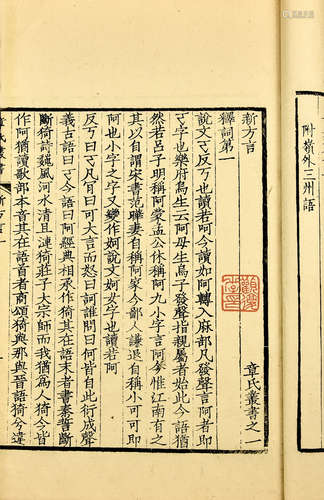 附嶺外三州語
新方言
章氏叢書之一
釋詞第一
說文𠀀反丂也讀若呵今讀如阿轉入麻部凡發聲言阿者即
𠀀字也樂府焦生云阿母生焉子發聲指親屬者始此今語猶
然若呂子明稱阿蒙孟公休稱阿九小字言阿
惟江南有之
其以自稱者宋書范曄妻自稱阿家今鄙人謙退自稱小可可即
阿也小字之字又變作妸說文妸女字也讀若阿
反丂曰𠀀凡有曰可大言而怒曰訶誰問曰何皆自此衍成聲
義古語曰𠀀今語曰阿經典相承作猗其在語末者書泰誓斷
斷猗詩魏風河水清且漣猗莊子大宗師而我猶為人猗今皆
作阿猶讀歌部本音其在語首者商頌猗與那與晉語猗兮違
章氏叢書
新方言一